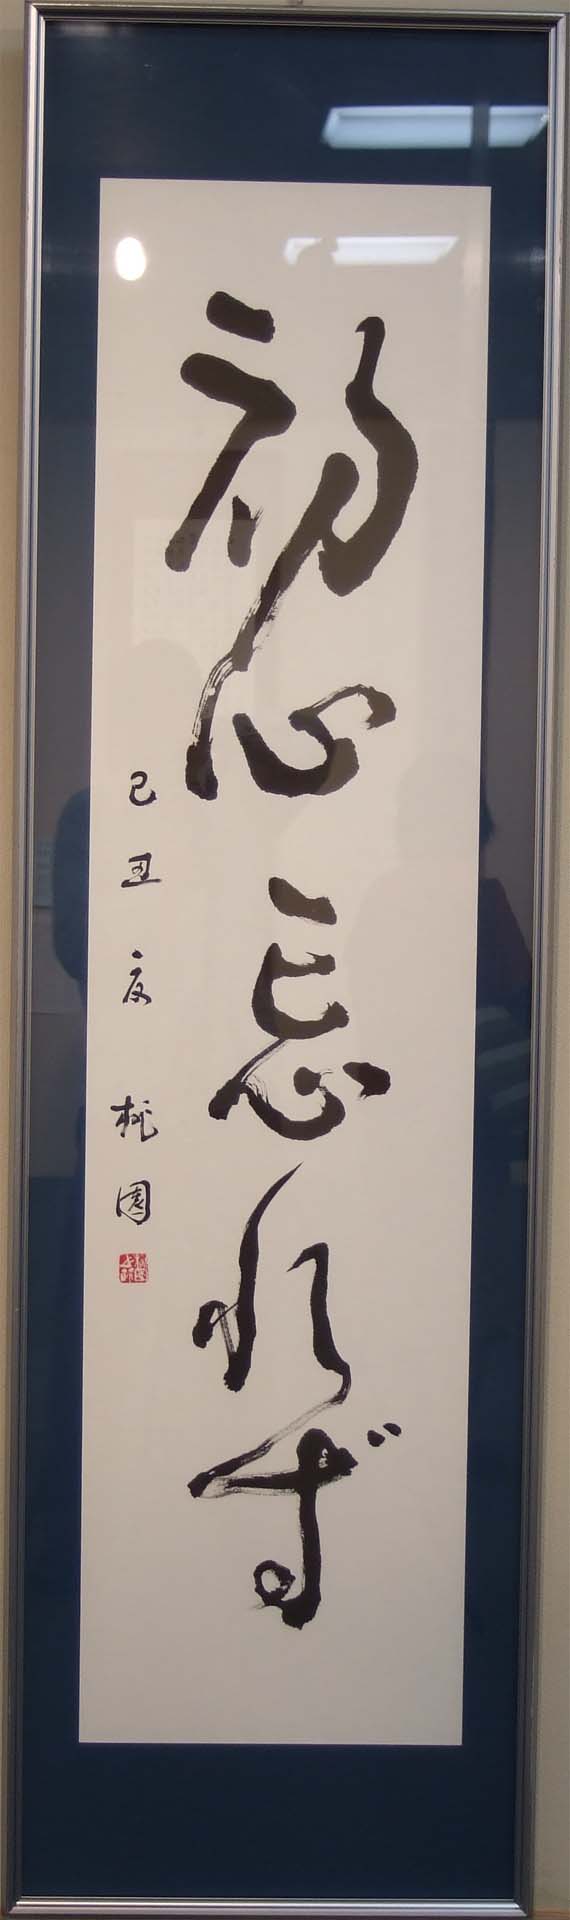 初心忘れず
己丑夏 桃園